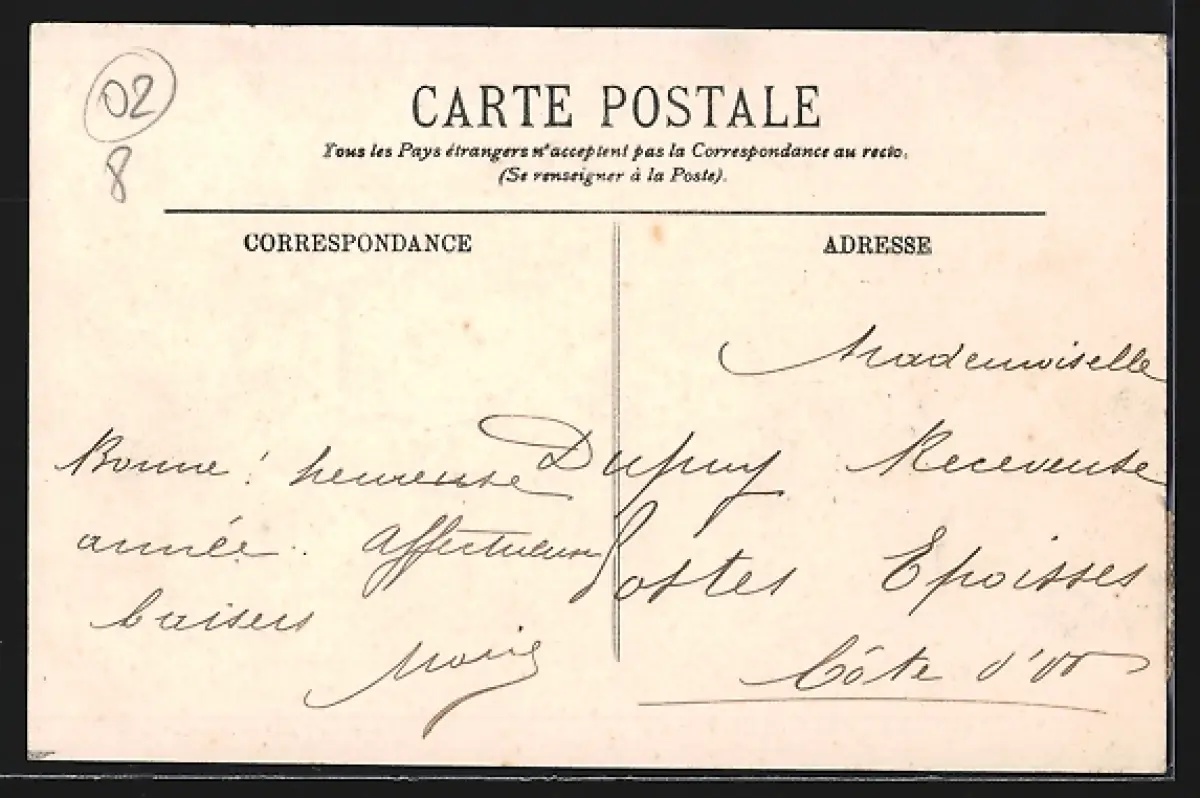 02
8
CARTE POSTALE
Tous les Pays étrangers n'acceptent pas la Correspondance au recto.
(Se renseigner à la Poste).
CORRESPONDANCE
Bonne ! heureuse
année. Affectueux
baisers
ADRESSE
Mademoiselle
Dupuy Receveuse
Postes Epoisses
Côte d'Or